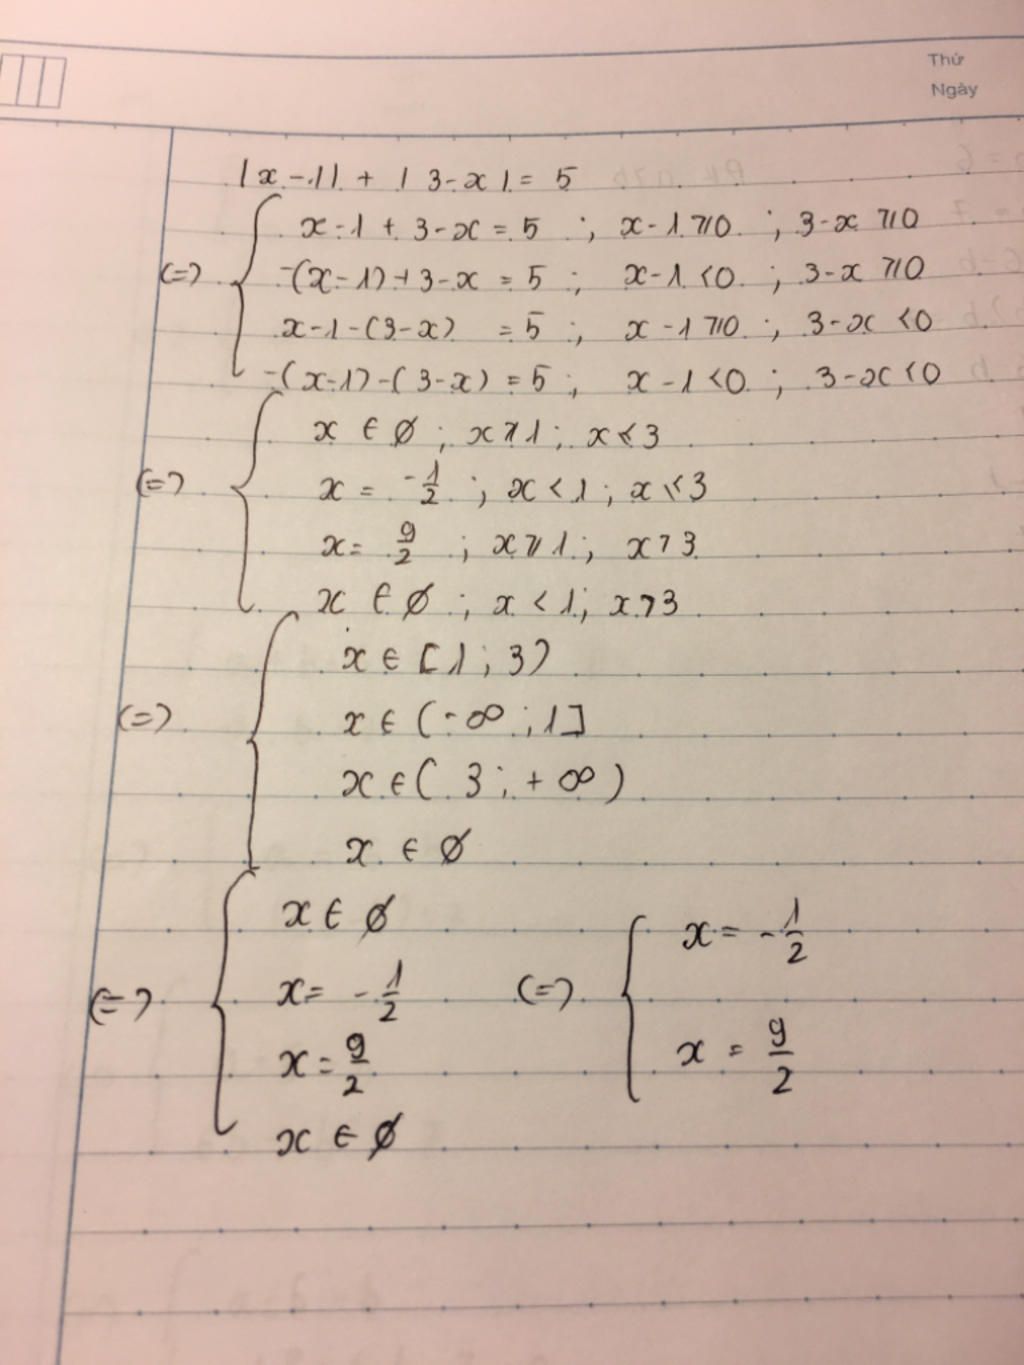 Thứ
Ngày
|x-1| + |3-x| = 5
x-1+3-x=5 ; x-1⩾0 ; 3-x⩾0
(=) -(x-1)+3-x = 5 ; x-1<0 ; 3-x⩾0
x-1-(3-x) = 5 ; x-1⩾0 ; 3-x<0
-(x-1)-(3-x) = 5 ; x-1<0 ; 3-x<0
x ∈ ∅ ; x⩾1 ; x⩽3
(=) x = -1/2 ; x<1 ; x⩽3
x = 9/2 ; x⩾1 ; x>3
x ∈ ∅ ; x<1 ; x>3
x ∈ [1;3)
(=) x ∈ (-∞;1]
x ∈ (3;+∞)
x ∈ ∅
x ∈ ∅
(=) x = -1/2
x = 9/2
x ∈ ∅
(=) x = -1/2
x = 9/2